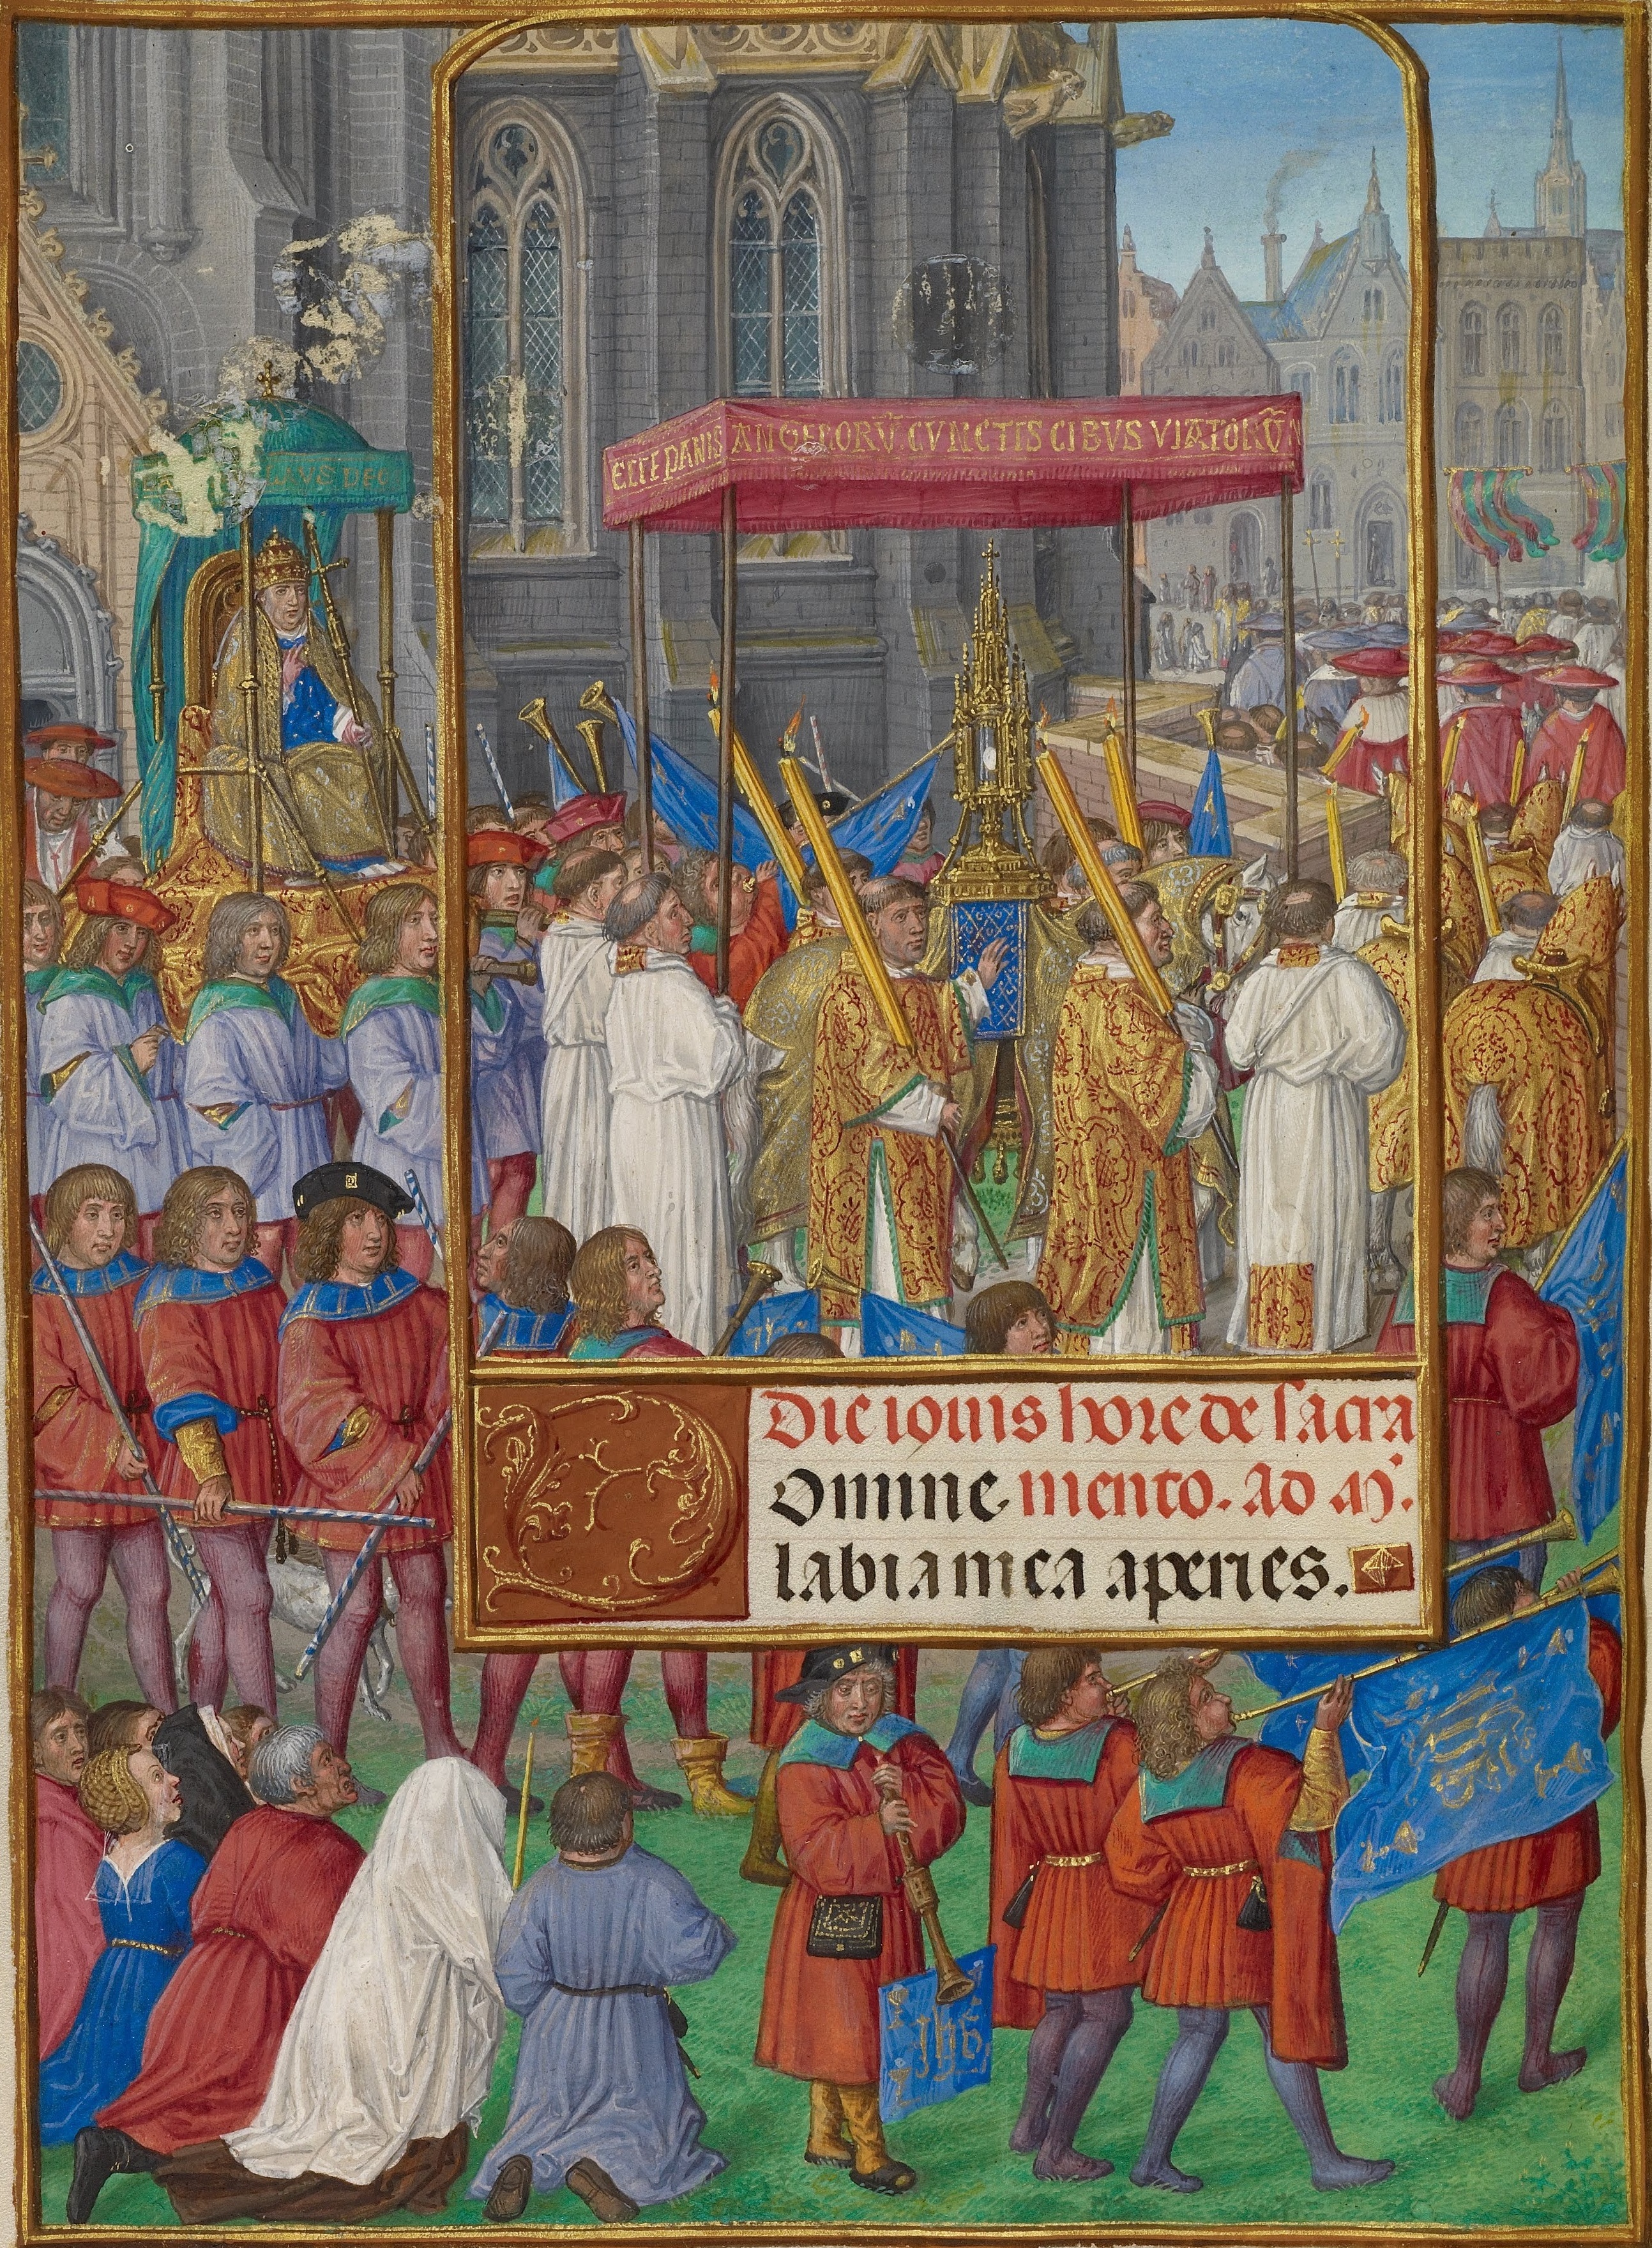 ECCE PANIS ANGELORV̄ CVNCTIS CIBVS VIATORV̄
Die iouis hore de sacra
D omine mento. Ad m̃.
labia mea aperies.
ihs